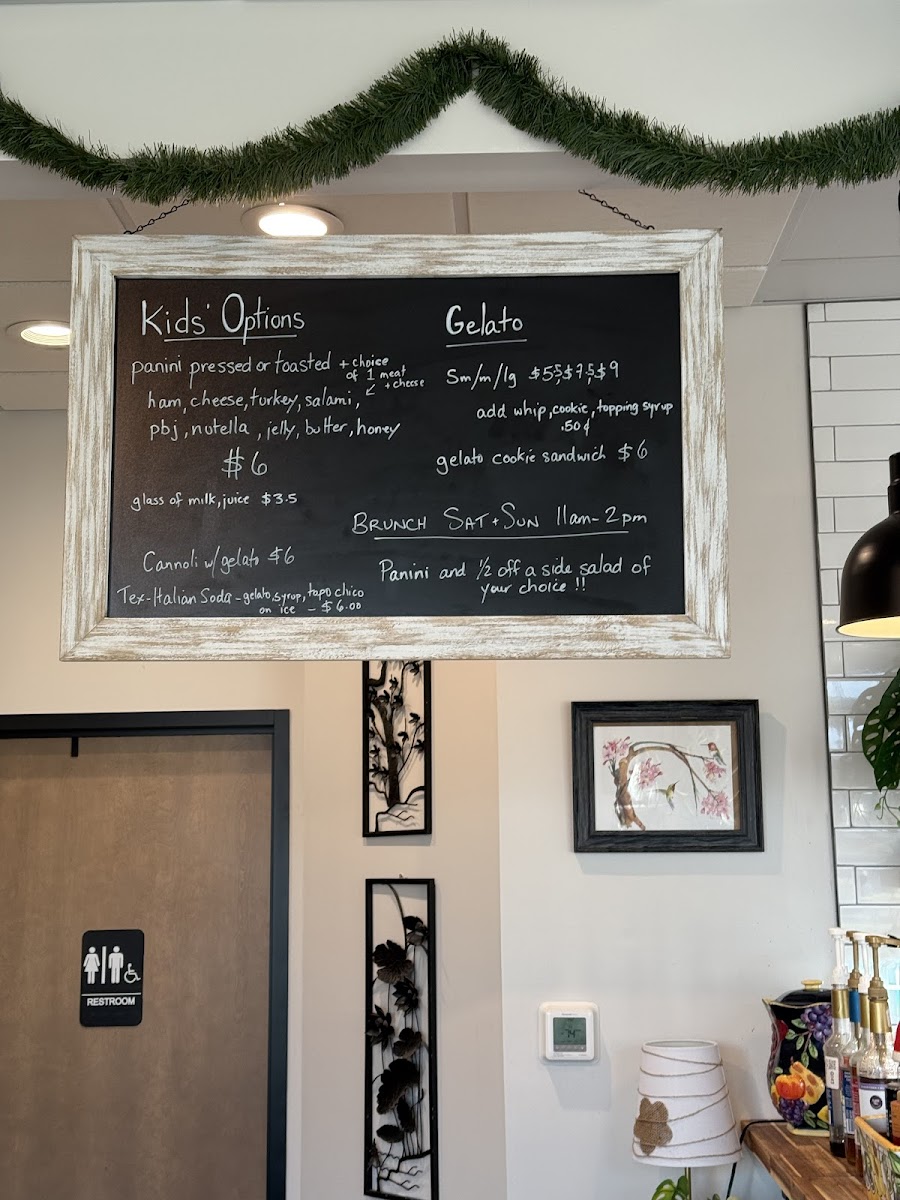 Kids' Options
panini pressed or toasted + choice
of 1 meat
+ cheese
ham, cheese, turkey, salami,
pbj, nutella, jelly, butter, honey
$6
glass of milk, juice $3.5
Cannoli w/ gelato $6
Tex-Italian Soda - gelato, syrup, topo chico
on ice - $6.00
Gelato
Sm/m/lg $5.5, $7.5, $9
add whip, cookie, topping syrup
.50¢
gelato cookie sandwich $6
BRUNCH SAT + SUN 11am - 2pm
Panini and 1/2 off a side salad of
your choice !!
RESTROOM